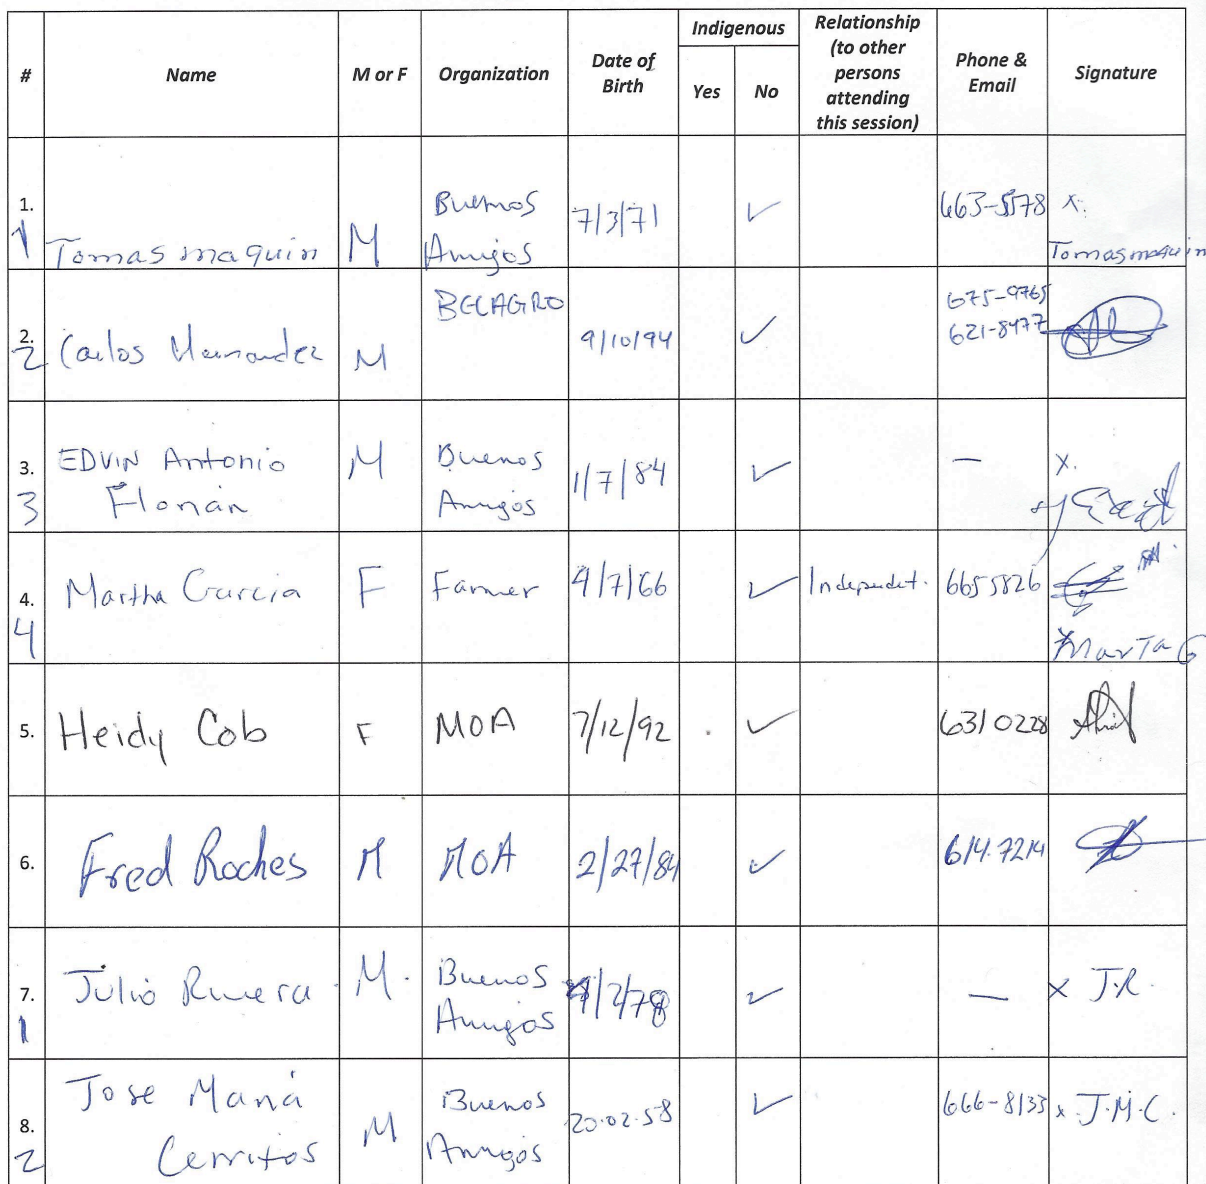 # Name M or F Organization Date of Birth Indigenous Yes No Relationship (to other persons attending this session) Phone & Email Signature
1. 1 Tomas maquin M Buenos Amigos 7/3/71 ✓ 663-5578 x. Tomas maquin
2. 2 Carlos Hernandez M BELAGRO 9/10/94 ✓ 675-9765 621-8477
3. 3 EDVIN Antonio Florián M Buenos Amigos 1/7/84 ✓ — x.
4. 4 Martha Garcia F Farmer 4/7/66 ✓ Independet. 665 5826 x Marta G
5. Heidy Cob F MOA 7/12/92 ✓ 631 0228
6. Fred Roches M MOA 2/27/84 ✓ 614.7214
7. 1 Julio Rivera M. Buenos Amigos /2/78 ✓ — x J.R.
8. 2 Jose Maria Cerritos M Buenos Amigos 20.02.58 ✓ 666-8133 x J.M.C.